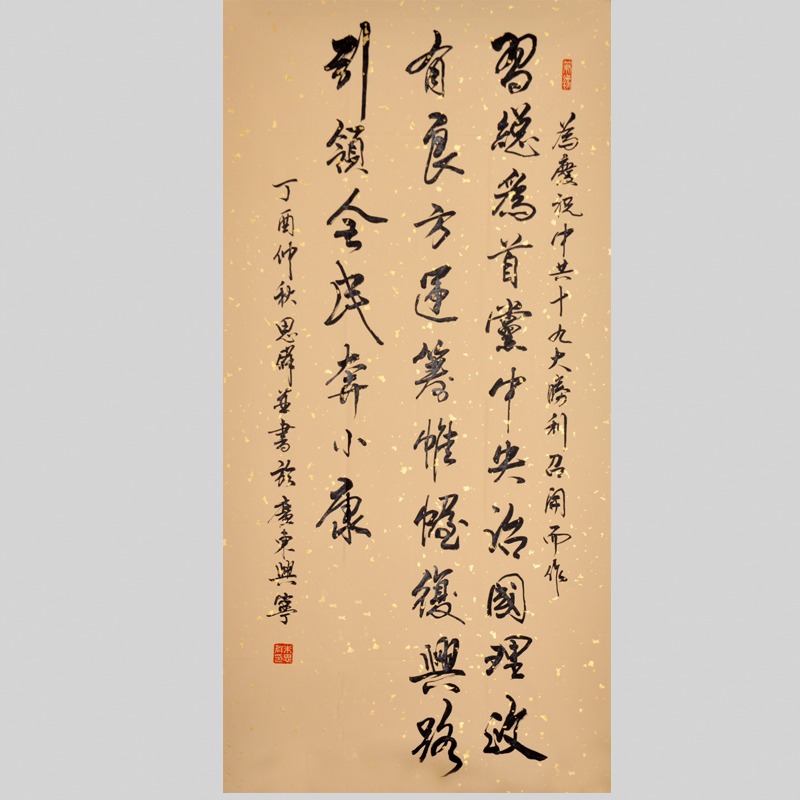 為慶祝中共十九大勝利召開而作
習總爲首黨中央治國理政
有良方運籌帷幄復興路
引領全民奔小康
丁酉仲秋思群並書於廣東興寧